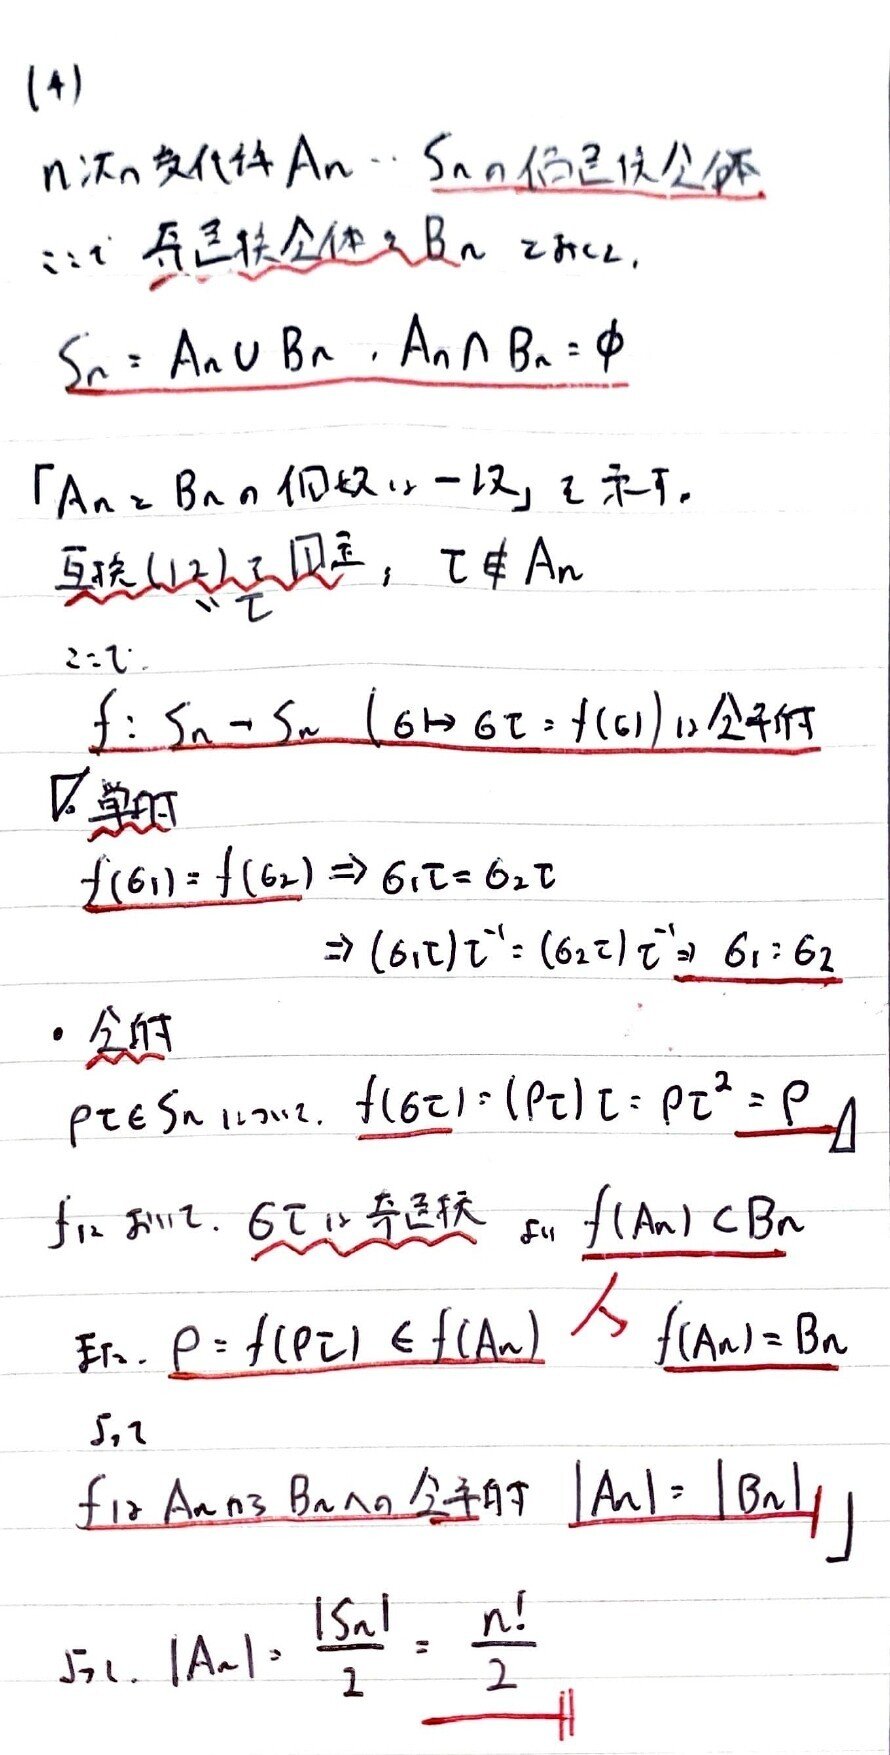 (4)
n次の交代群 An … Snの偶置換全体
ここで 奇置換全体を Bn とおくと,
Sn = An ∪ Bn , An ∩ Bn = φ
「An と Bn の個数は一致」を示す.
互換(12)を固定, τ ∉ An
" τ
ここで.
f : Sn → Sn (σ ↦ στ = f(σ)) は全単射
単射
f(σ1) = f(σ2) ⇒ σ1τ = σ2τ
⇒ (σ1τ)τ⁻¹ = (σ2τ)τ⁻¹ ⇒ σ1 = σ2
・全射
ρτ ∈ Sn について. f(στ) = (ρτ)τ = ρτ² = ρ
fにおいて. στは奇置換 より f(An) ⊂ Bn
また. ρ = f(ρτ) ∈ f(An) f(An) = Bn
よって
fは AnからBnへの全単射 |An| = |Bn| 」
よって. |An| = |Sn|/2 = n!/2